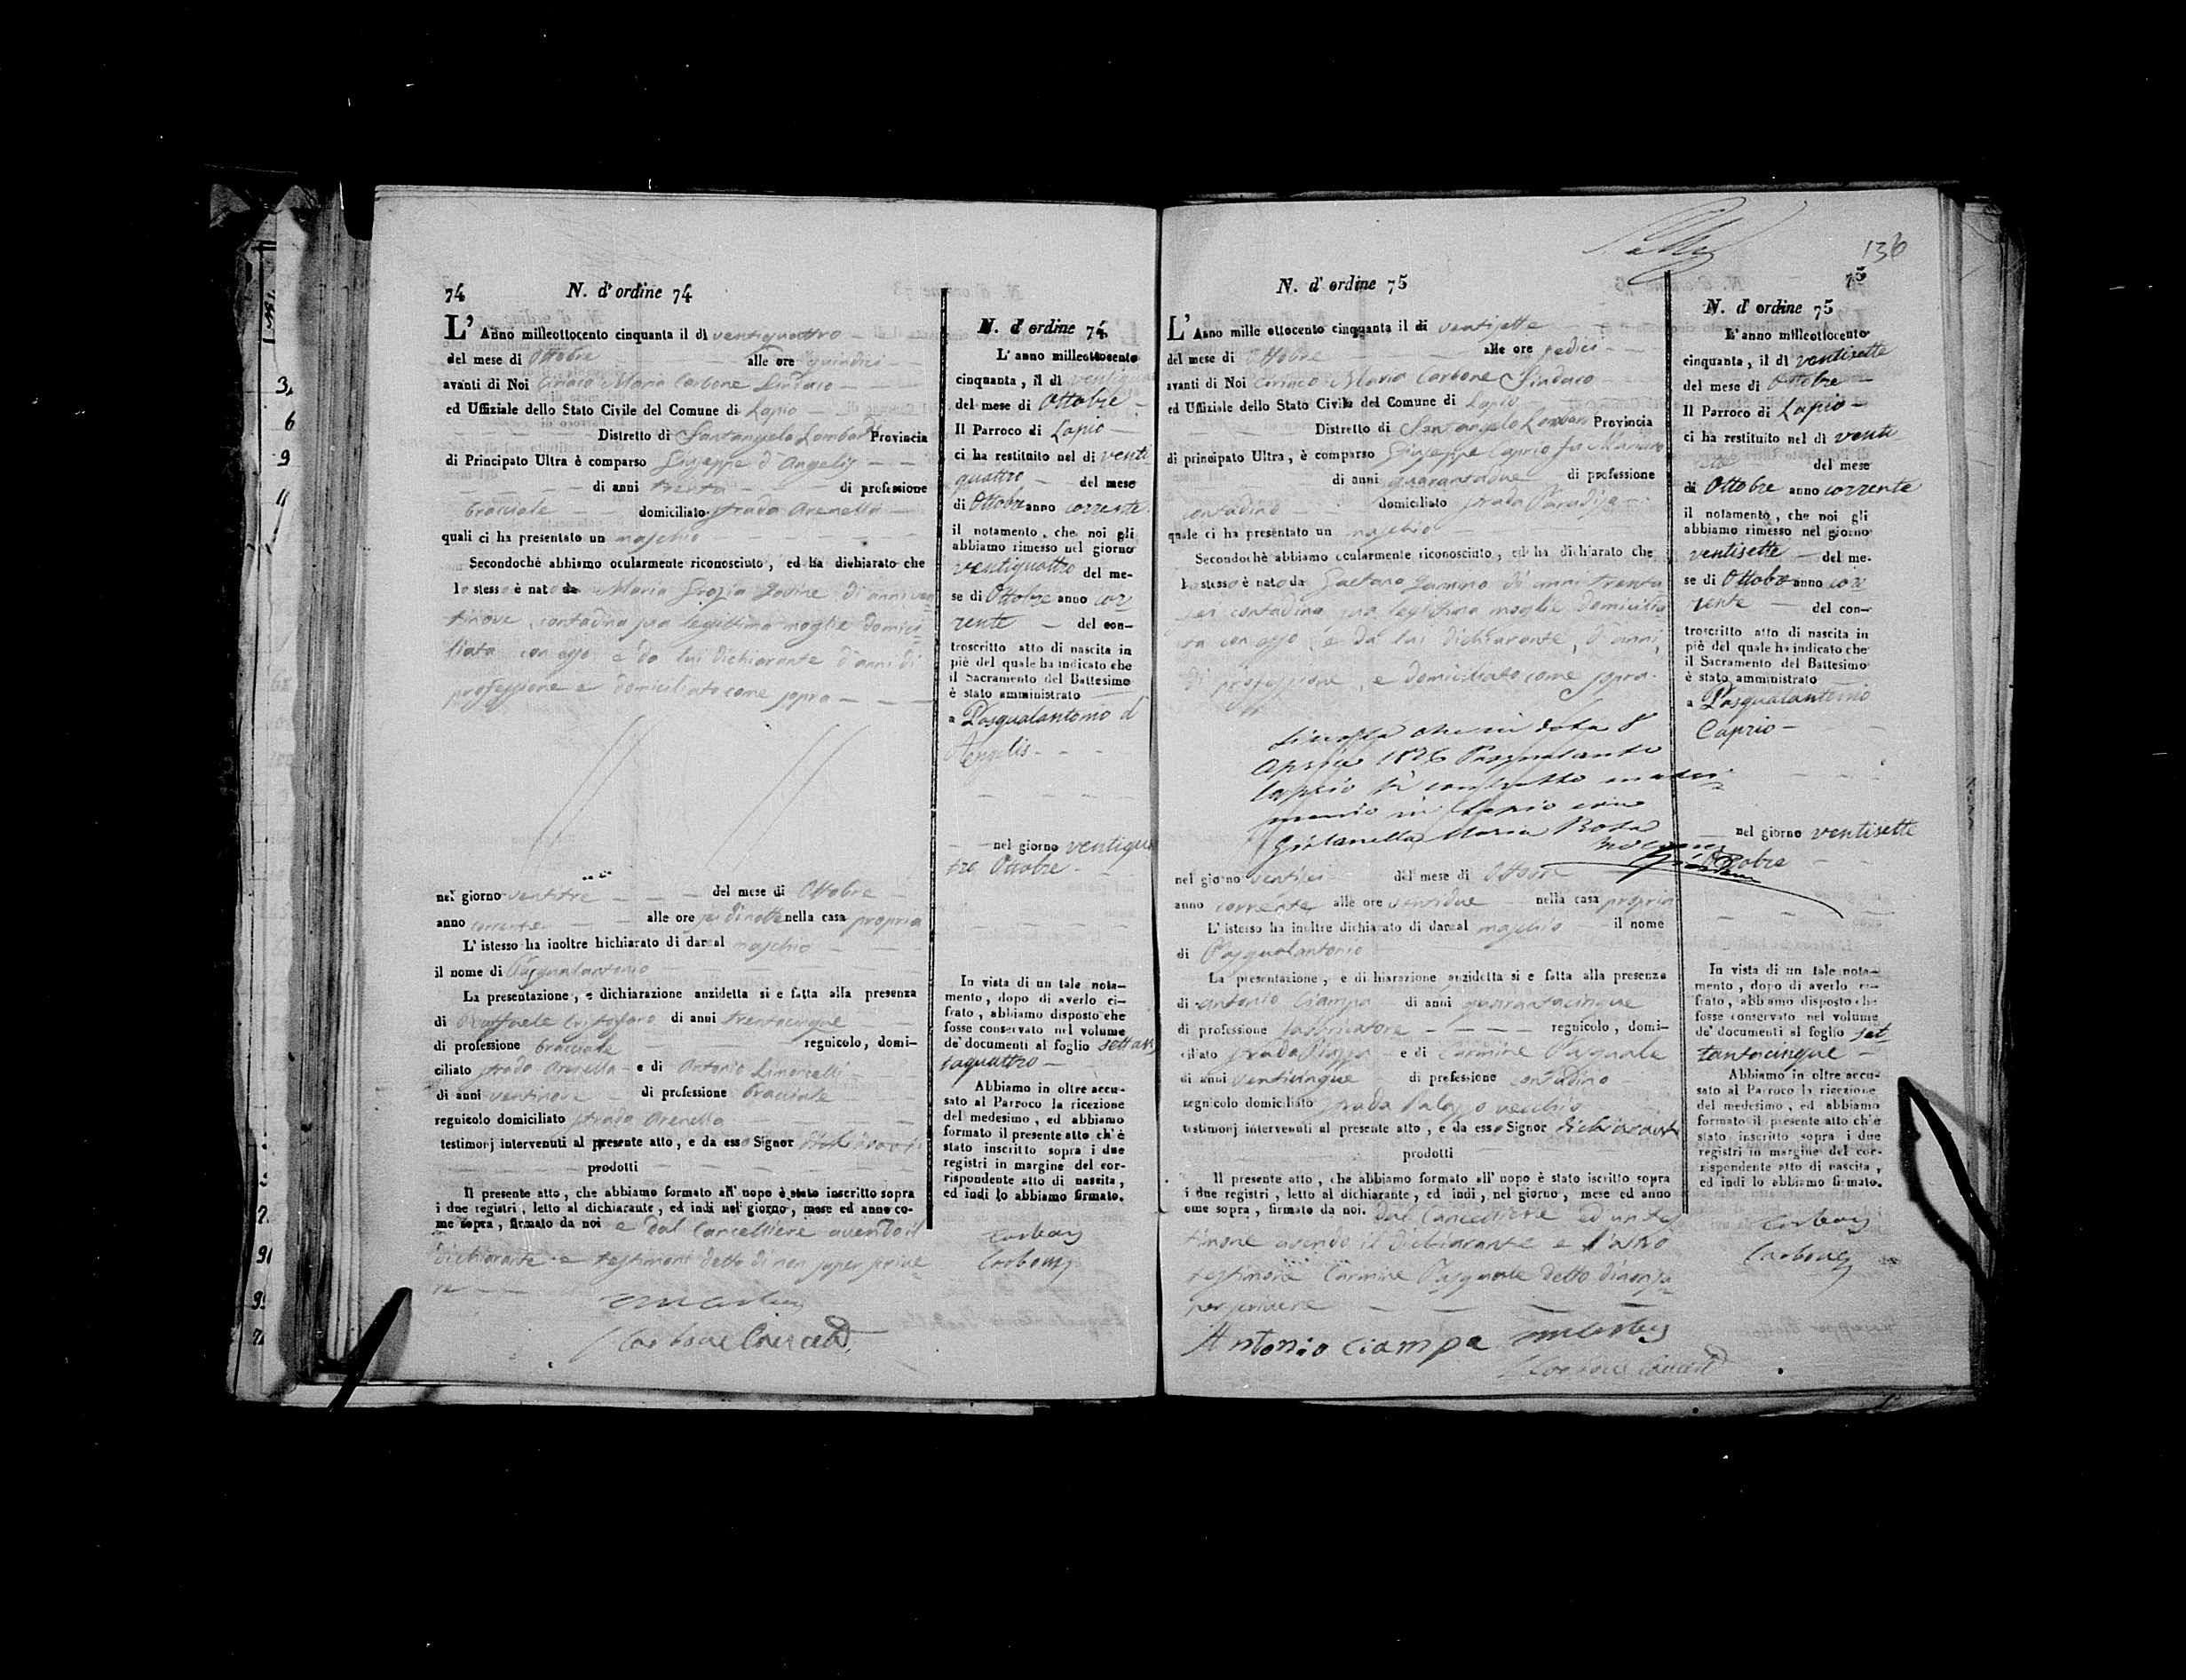 74
N. d' ordine 74
L' Anno milleottocento cinquanta il dì ventiquattro
del mese di Ottobre alle ore quindici
avanti di Noi Ciriaco Maria Carbone Sindaco
ed Uffiziale dello Stato Civile del Comune di Lapio
Distretto di Santangelo Lombardi Provincia
di Principato Ultra è comparso Giuseppe d'Angelis
di anni trenta di professione
bracciale domiciliato strada Arenella
quali ci ha presentato un maschio
Secondochè abbiamo ocularmente riconosciuto, ed ha dichiarato che
lo stesso è nato da Maria Grazia Iovine di anni ven
tinove, contadina sua legittima moglie domici
liata con esso e da lui dichiarante d'anni di
professione e domiciliato come sopra
nel giorno ventitre del mese di Ottobre
anno corrente alle ore sei di notte nella casa propria
L' istesso ha inoltre hichiarato di dar al maschio
il nome di Pasqualantonio
La presentazione, e dichiarazione anzidetta si e fatta alla presenza
di Raffaele Cristofaro di anni trentacinque
di professione bracciale regnicolo, domi-
ciliato strada Arenella e di Antonio Limoncelli
di anni ventinove di professione bracciale
regnicolo domiciliato strada Arenella
testimonj intervenuti al presente atto, e da esso Signor dichiarante
prodotti
Il presente atto, che abbiamo formato all' uopo è stato inscritto sopra
i due registri, letto al dichiarante, ed indi nel giorno, mese ed anno co-
me sopra, firmato da noi e dal Cancelliere avendo il
dichiarante e testimoni detto di non saper scrive
re
Carbone Cancell.
N. d' ordine 74
L' anno milleottocento
cinquanta, il dì
del mese di Ottobre
Il Parroco di Lapio
ci ha restituito nel di venti
quattro del mese
di Ottobre anno corrente
il notamento, che noi gli
abbiamo rimesso nel giorno
ventiquattro del me-
se di Ottobre anno cor
rente del con-
troscritto atto di nascita in
piè del quale ha indicato che
il Sacramento del Battesimo
è stato amministrato
a Pasqualantonio d
Angelis
nel giorno ventiqua
tro Ottobre
In vista di un tale nota-
mento, dopo di averlo ci-
frato, abbiamo disposto che
fosse conservato nel volume
de' documenti al foglio settan
taquattro
Abbiamo in oltre accu-
sato al Parroco la ricezione
del medesimo, ed abbiamo
formato il presente atto ch'è
stato inscritto sopra i due
registri in margine del cor-
rispondente atto di nascita,
ed indi lo abbiamo firmato.
Carbone
Carbone
136
75
N. d' ordine 75
L' Anno mille ottocento cinquanta il dì ventisette
del mese di Ottobre alle ore sedici
avanti di Noi Ciriaco Maria Carbone Sindaco
ed Uffiziale dello Stato Civile del Comune di Lapio
Distretto di Santangelo Lombardi Provincia
di principato Ultra, è comparso Giuseppe Caprio fu
di anni quarantadue di professione
contadino domiciliato strada Paradiso
quale ci ha presentato un maschio
Secondochè abbiamo ocularmente riconosciuto, ed ha dichiarato che
lo stesso è nato da Gaetana di anni trenta
sei contadina sua legittima moglie domicilia
ta con esso, e da lui dichiarante, d'anni,
di professione, e domiciliato come sopra.
Aprile 1876 Pasqualanto
Caprio ha contratto matri
monio in Lapio con
Maria Rosa
nel giorno ventisei del mese di Ottobre
anno corrente alle ore ventidue nella casa propria
L' istesso ha inoltre dichiarato di dar al maschio il nome
di Pasqualantonio
La presentazione, e di hiarazione anzidetta si e fatta alla presenza
di Antonio Ciampa di anni quarantacinque
di professione fabbricatore regnicolo, domi-
ciliato strada Piazza e di Carmine Pasquale
di anni venticinque di professione contadino
regnicolo domiciliato strada Palazzo vecchio
testimonj intervenuti al presente atto, e da esso Signor dichiarante
prodotti
Il presente atto, che abbiamo formato all' uopo è stato iscritto sopra
i due registri, letto al dichiarante, ed indi, nel giorno, mese ed anno
ome sopra, firmato da noi. dal Cancelliere ed un tes
timone avendo il dichiarante e l'altro
testimone Carmine Pasquale detto di non sa
per scrivere
Antonio Ciampa
Carbone Cancell.
N. d' ordine 75
L' anno milleottocento
cinquanta, il dì ventisette
del mese di Ottobre
Il Parroco di Lapio
ci ha restituito nel dì venti
del mese
di Ottobre anno corrente
il notamento, che noi gli
abbiamo rimesso nel giorno
ventisette del me-
se di Ottobre anno cor
rente del con-
troscritto atto di nascita in
piè del quale ha indicato che
il Sacramento del Battesimo
è stato amministrato
a Pasqualantonio
Caprio
nel giorno ventisette
Ottobre
In vista di un tale nota-
mento, dopo di averlo ci-
frato, abbiamo disposto che
fosse conservato nel volume
de' documenti al foglio set
tantacinque
Abbiamo in oltre accu-
sato al Parroco la ricezione
del medesimo, ed abbiamo
formato il presente atto ch'è
stato inscritto sopra i due
registri in margine del cor-
rispondente atto di nascita,
ed indi lo abbiamo firmato.
Carbone
Carbone